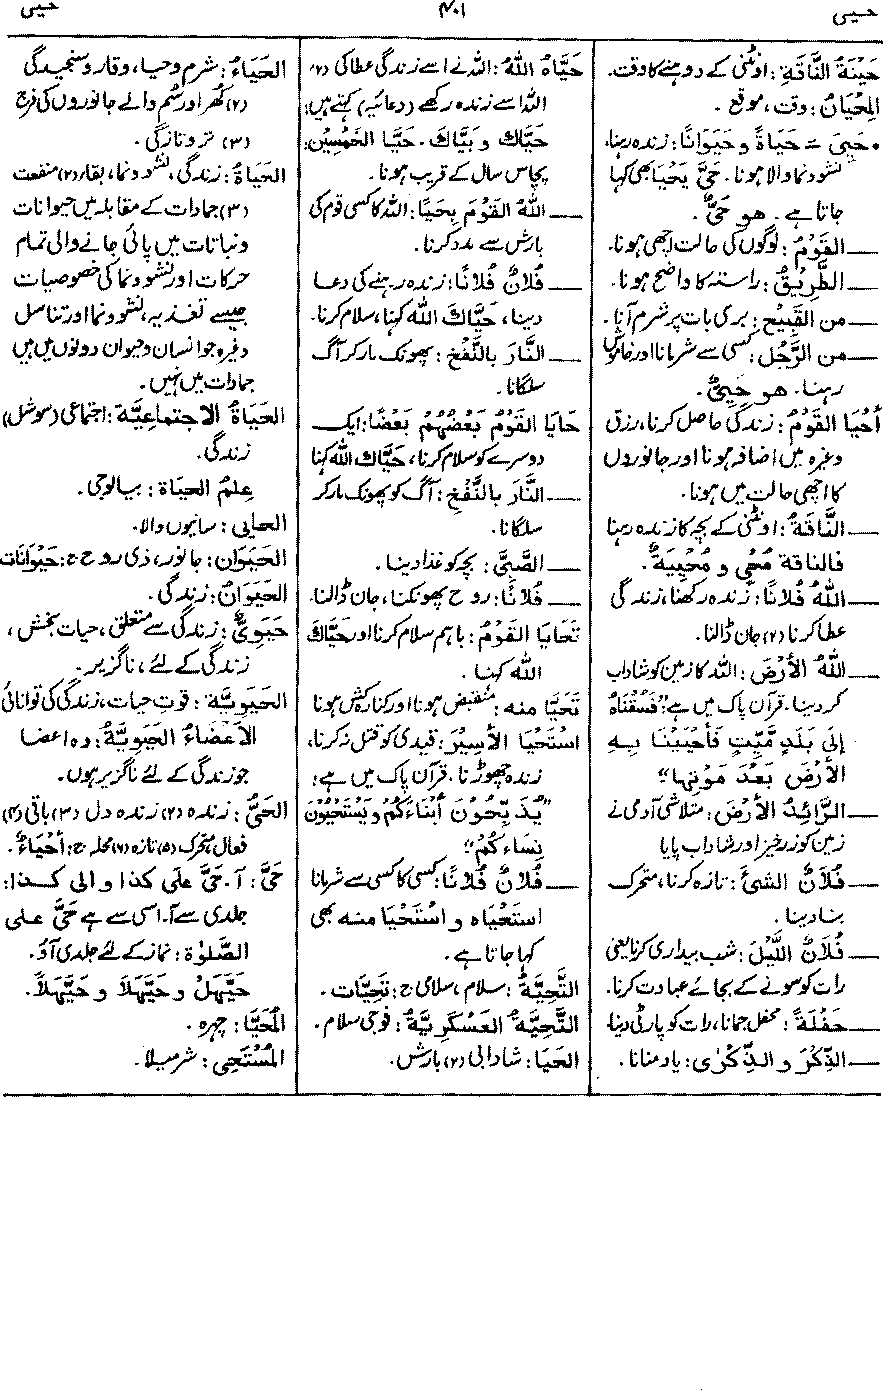 حیی
۴۰۱
حیی
حَيْنَةُ النَّاقَةِ: اونٹنی کے دوہنے کا وقت۔
المِحْيَانُ: وقت، موقع۔
• حَيِيَ ـَ حَيَاةً و حَيَوَانًا: زندہ رہنا،
نشو و نما والا ہونا۔ حَيَّ يَحْيَا بھی کہا
جاتا ہے۔ هو حَيٌّ۔
— القَوْمُ: لوگوں کی حالت اچھی ہونا۔
— الطَّرِيْقُ: راستہ کا واضح ہونا۔
— من القَبِيْحِ: بری بات پر شرم آنا۔
— من الرَّجُلِ: کسی سے شرمانا اور خاموش
رہنا۔ هو حَيِيٌّ۔
أَحْيَا القَوْمُ: زندگی حاصل کرنا، رزق
وغیرہ میں اضافہ ہونا اور جانوروں
کا اچھی حالت میں ہونا۔
— النَّاقَةُ: اونٹنی کے بچہ کا زندہ رہنا
فالناقة مُحْيٍ و مُحْيِيَةٌ۔
— اللهُ فُلَانًا: زندہ رکھنا، زندگی
عطا کرنا (۲) جان ڈالنا۔
— اللهُ الأَرْضَ: اللہ کا زمین کو شاداب
کر دینا۔ قرآن پاک میں ہے: "فَسُقْنَاهُ
إِلَى بَلَدٍ مَّيِّتٍ فَأَحْيَيْنَا بِهِ
الأَرْضَ بَعْدَ مَوْتِهَا"
— الرَّائِدُ الأَرْضَ: متلاشی آدمی نے
زمین کو زرخیز اور شاداب پایا
— فُلَانٌ الشَّيْءَ: تازہ کرنا، متحرک
بنا دینا۔
— فُلَانٌ اللَّيْلَ: شب بیداری کرنا یعنی
رات کو سونے کے بجائے عبادت کرنا۔
— حَفْلَةً: محفل جمانا، رات کو پارٹی دینا
— الذِّكْرَ و الذِّكْرٰى: یاد منانا۔
حَيَّاهُ اللهُ: اللہ نے اسے زندگی عطا کی (۲)
اللہ اسے زندہ رکھے (دعائیہ) کہتے ہیں:
حَيَّاكَ و بَيَّاكَ۔ حَيَّا الخَمْسِيْنَ:
پچاس سال کے قریب ہونا۔
— اللهُ القَوْمَ بِحَيًا: اللہ کا کسی قوم کی
بارش سے مدد کرنا۔
— فُلَانٌ فُلَانًا: زندہ رہنے کی دعا
دینا، حَيَّاكَ اللهُ کہنا، سلام کرنا۔
— النَّارَ بِالنَّفْخِ: پھونک مار کر آگ
سلگانا۔
حَايَا القَوْمُ بَعْضُهُمْ بَعْضًا: ایک
دوسرے کو سلام کرنا، حَيَّاكَ اللهُ کہنا
— النَّارَ بِالنَّفْخِ: آگ کو پھونک مار کر
سلگانا۔
— الصَّبِيَّ: بچہ کو غذا دینا۔
— فُلَانًا: روح پھونکنا، جان ڈالنا۔
تَحَايَا القَوْمُ: باہم سلام کرنا اور حَيَّاكَ
الله کہنا۔
تَحَيَّا منه: منقبض ہونا اور کنارہ کش ہونا
اسْتَحْيَا الأَسِيْرَ: قیدی کو قتل نہ کرنا،
زندہ چھوڑنا۔ قرآن پاک میں ہے:
"يُذَبِّحُوْنَ أَبْنَاءَكُمْ وَيَسْتَحْيُوْنَ
نِسَاءَكُمْ"
— فُلَانٌ فُلَانًا: کسی کا کسی سے شرمانا
اسْتَحْيَاه و اسْتَحْيَا منه بھی
کہا جاتا ہے۔
التَّحِيَّةُ: سلام، سلامی ج: تَحِيَّات۔
التَّحِيَّةُ العَسْكَرِيَّةُ: فوجی سلام۔
الحَيَا: شادابی (۲) بارش۔
الحَيَاءُ: شرم و حیا، وقار و سنجیدگی
(۲) کُھر اور سُم والے جانوروں کی فرج
(۳) تر و تازگی۔
الحَيَاةُ: زندگی، نشو و نما، بقاء (۲) منفعت
(۳) جمادات کے مقابلہ میں حیوانات
و نباتات میں پائی جانے والی تمام
حرکات اور نشو و نما کی خصوصیات
جیسے تغذیہ، نشو و نما اور تناسل
وغیرہ جو انسان و حیوان دونوں میں ہیں
جمادات میں نہیں۔
الحَيَاةُ الاجتماعيَّة: اجتماعی (سوشل)
زندگی۔
عِلمُ الحَيَاة: بیالوجی۔
الحابى: سانپوں والا۔
الحَيَوَان: جانور، ذی روح ج: حَيَوَانَات
الحَيَوَانُ: زندگی۔
حَيَوِيٌّ: زندگی سے متعلق، حیات بخش،
زندگی کے لئے، ناگزیر۔
الحَيَوِيَّة: قوتِ حیات، زندگی کی توانائی
الأَعْضَاءُ الحَيَوِيَّةُ: وہ اعضا
جو زندگی کے لئے ناگزیر ہوں۔
الحَيُّ: زندہ (۲) زندہ دل (۳) باقی (۴)
فعال متحرک (۵) تازہ (۶) محلہ ج: أَحْيَاءٌ۔
حَيَّ: آ۔ حَيَّ عَلَى كذا و الى كذا:
جلدی سے آ۔ اسی سے ہے حَيَّ على
الصَّلٰوة: نماز کے لئے جلدی آؤ۔
حَيَّهَلْ و حَيَّهَلَا و حَيَّهَلًا۔
المُحَيَّا: چہرہ۔
المُسْتَحِي: شرمیلا۔